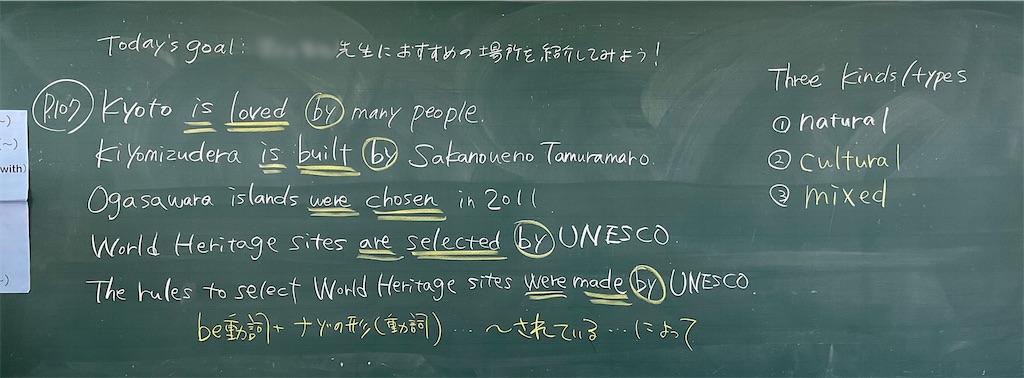 Today's goal: 先生におすすめの場所を紹介してみよう!
P.107 Kyoto is loved by many people.
Kiyomizudera is built by Sakanoueno Tamuramaro.
Ogasawara islands were chosen in 2011
World Heritage sites are selected by UNESCO.
The rules to select World Heritage sites were made by UNESCO.
be動詞+ ナゾの形(動詞) … ～されている … によって
Three kinds/types
① natural
② cultural
③ mixed
~)
(~)
with)
~)